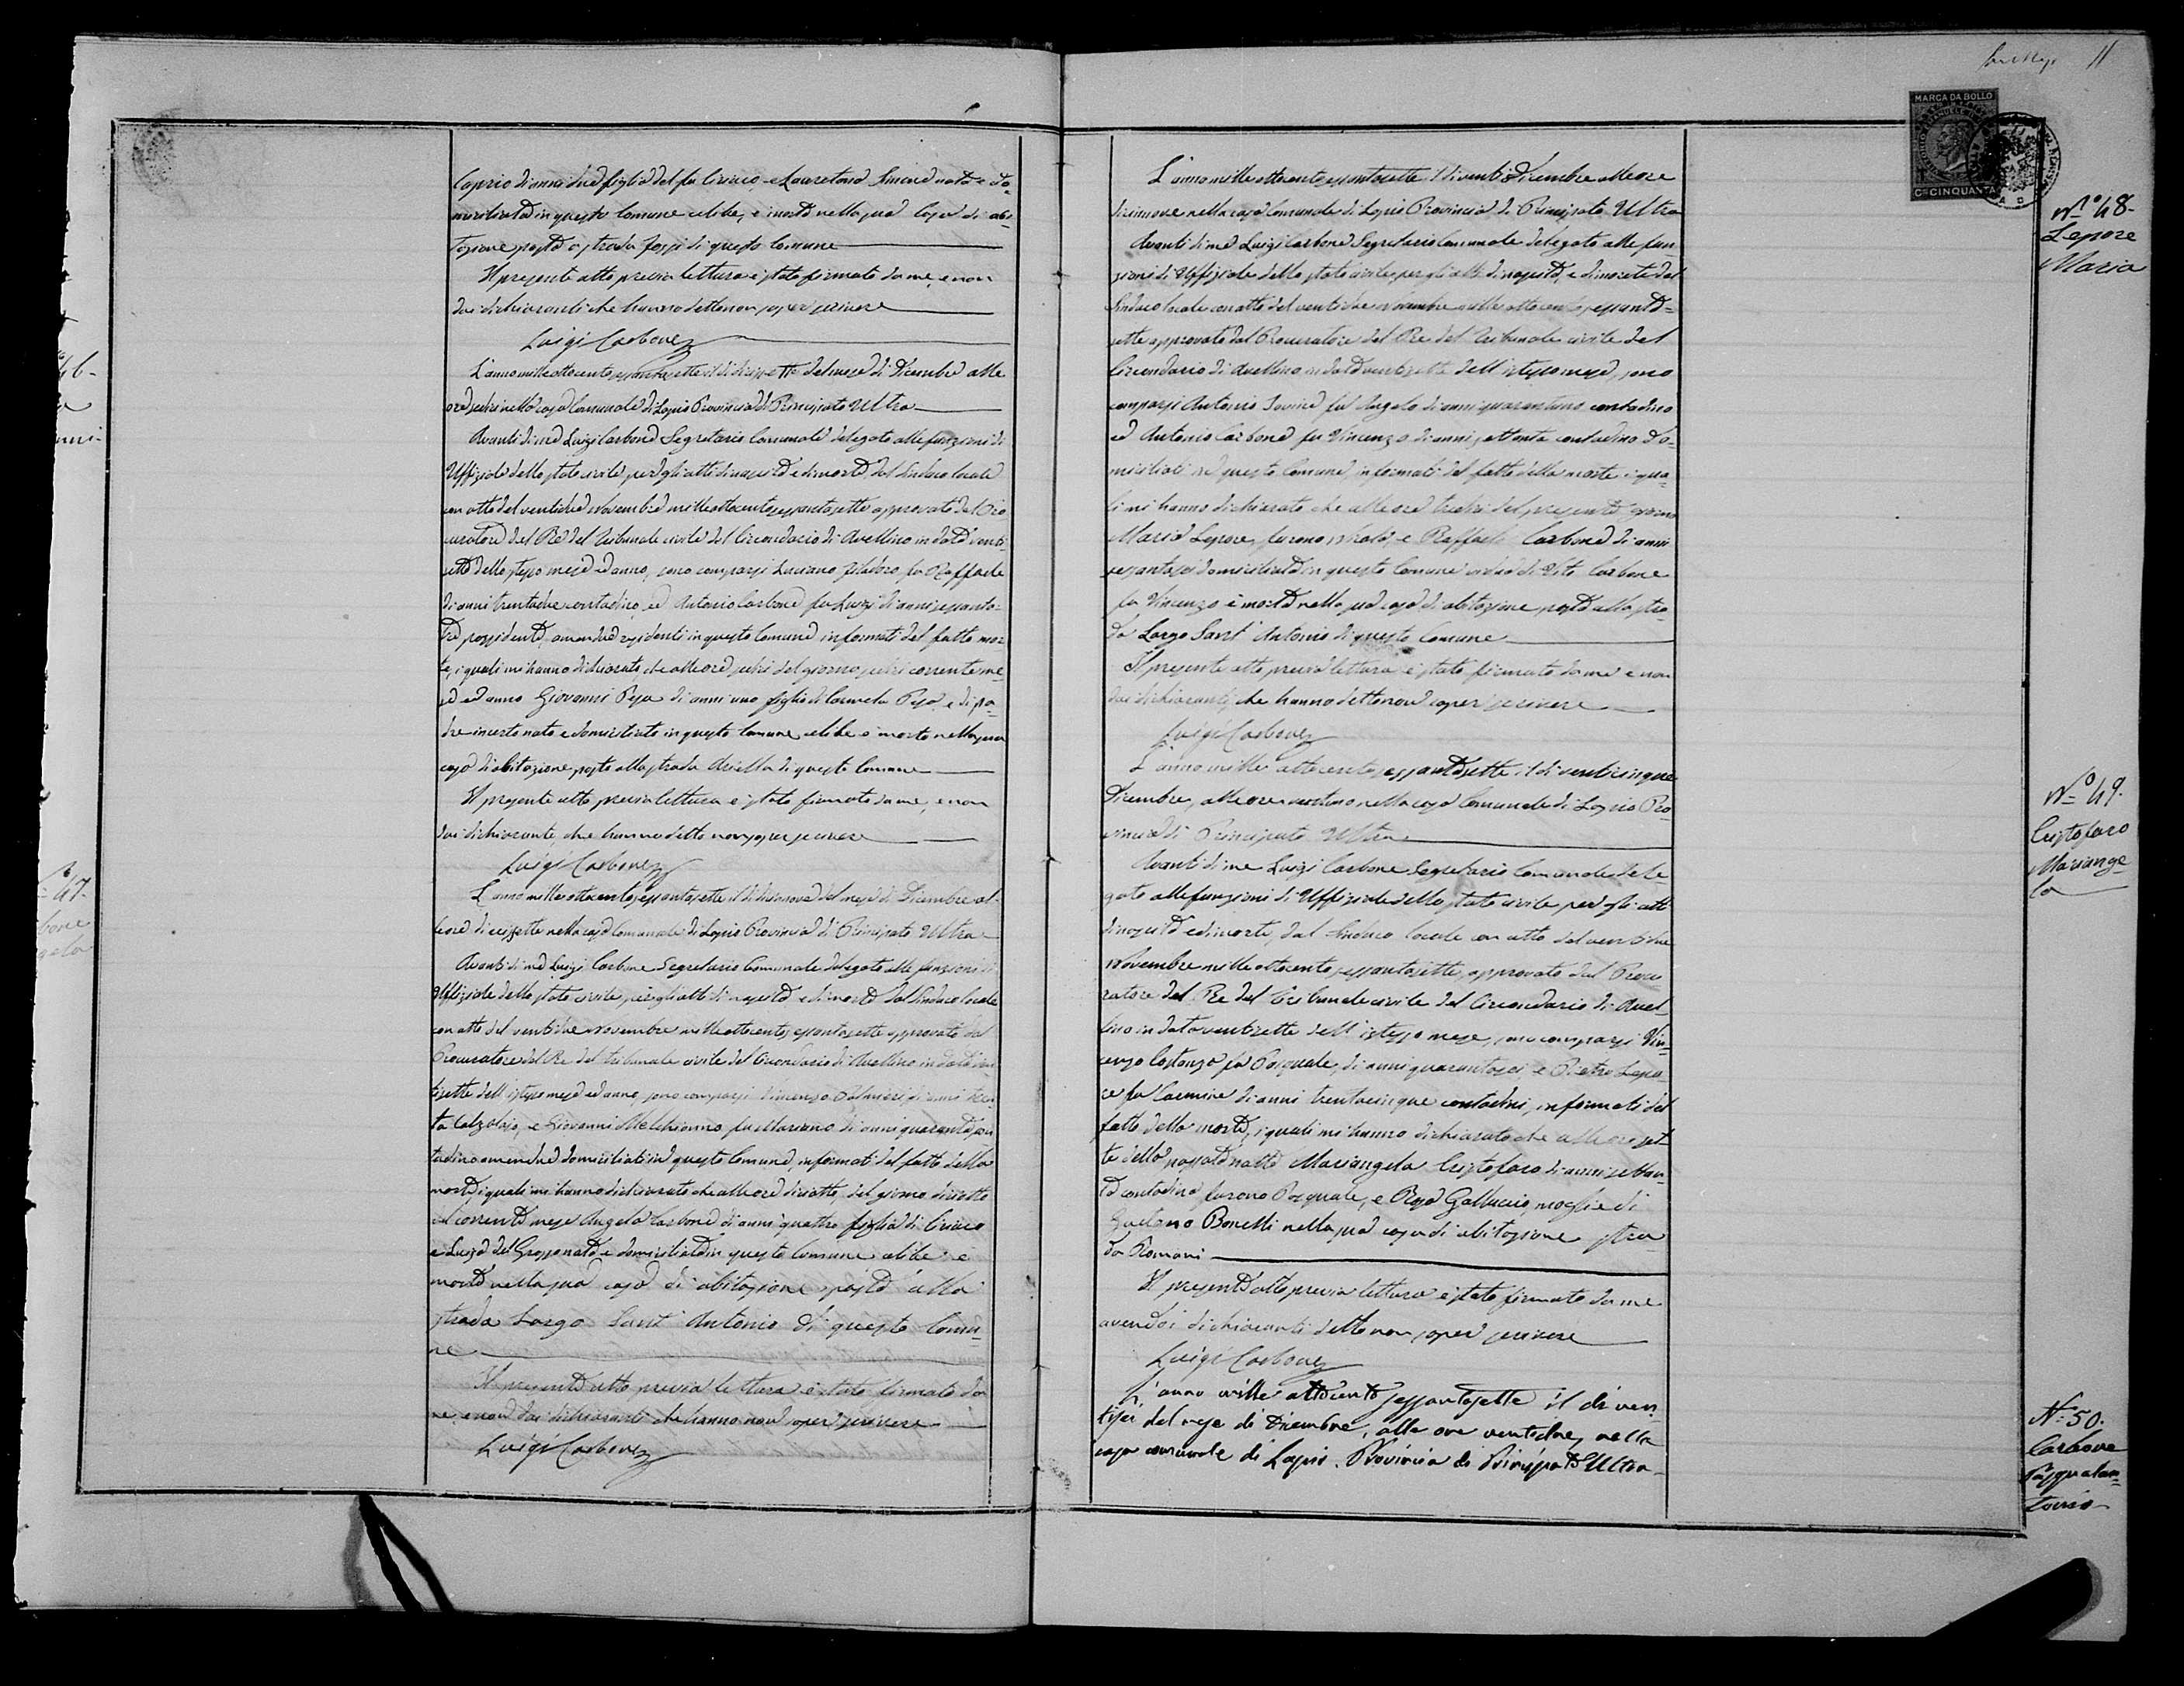 Caprio di anni due figlia del fu Ciriaco, e Lauretana Simone nata e do=
miciliata in questo Comune celibe, e morta nella sua casa di abi=
tazione posta a strada Fossi di questo Comune
Il presente atto previa lettura è stato firmato da me, e non
dai dichiaranti che hanno detto non saper scrivere
Luigi Carbone
L'anno mille ottocento sessantasette il dì diciasette del mese di Dicembre alle
ore sedici nella casa Comunale di Lapio Provincia di Principato Ultra
Avanti di me Luigi Carbone Segretario Comunale delegato alle funzioni di
Uffiziale dello stato civile per gli atti di nascita e di morte, dal Sindaco locale
con atto del ventidue Novembre mille ottocento sessantasette approvato dal Pro
curatore del Re del Tribunale civile del Circondario di Avellino in data venti
sette dello stesso mese ed anno, sono comparsi Luciano fu Raffaele
di anni trentadue contadino, ed Antonio Carbone fu Luigi di anni sessanta=
tre possidente, amendue residenti in questo Comune informati del fatto mor
te, i quali mi hanno dichiarato, che alle ore sedici del giorno sedici corrente me
se ed anno Giovanni Pepa di anni uno figlio di Carmela Pepa, e di pa=
dre incerto nato e domiciliato in questo Comune celibe è morto nella sua
casa di abitazione posta alla strada Ariella di questo Comune
Il presente atto previa lettura è stato firmato da me, e non
dai dichiaranti, che hanno detto non saper scrivere
Luigi Carbone
No 47.
bone
gela
L'anno mille ottocento sessantasette il dì diecinove del mese di Dicembre al=
le ore diecissette nella casa Comunale di Lapio Provincia di Principato Ultra
Avanti di me Luigi Carbone Segretario Comunale delegato alle funzioni di
Uffiziale dello stato civile, per gli atti di nascita e di morte dal Sindaco locale
con atto del ventidue Novembre mille ottocento sessantasette approvato dal
Procuratore del Re del tribunale civile del Circondario di Avellino in data ven
tisette dell'istesso mese ed anno, sono comparsi Vincenzo Palmieri di anni tren
ta Calzolajo, e Giovanni Melchionno fu Mariano di anni quaranta con
tadino amendue domiciliati in questo Comune, informati del fatto della
morte, i quali mi hanno dichiarato che alle ore diciotto del giorno diciotto
del corrente mese Angela Carbone di anni quattro figlia di Ciriaco
e Luisa del Grosso nata e domiciliata in questo Comune celibe è
morta nella sua casa di abitazione posta alla
strada Largo Sant'Antonio di questo Comu=
ne
Il presente atto previa lettura è stato firmato da
me e non dai dichiaranti che hanno non saper scrivere
Luigi Carbone
11
MARCA DA BOLLO
Cmi CINQUANTA
No 48.
Lepore
Maria
L'anno mille ottocento sessantasette il dì venti Dicembre alle ore
diecinove nella casa Comunale di Lapio Provincia di Principato Ultra
Avanti di me Luigi Carbone Segretario Comunale delegato alle fun=
zioni di Uffiziale dello stato civile, per gli atti di nascita, e di morte dal
Sindaco locale con atto del ventidue Novembre mille ottocento sessanta=
sette approvato dal Procuratore del Re del Tribunale civile del
Circondario di Avellino in data ventisette dell'istesso mese, sono
comparsi Antonio Iovine fu Angelo di anni quarantuno contadino
ed Antonio Carbone fu Vincenzo di anni settanta contadino do=
miciliati in questo Comune, informati del fatto della morte i qua=
li mi hanno dichiarato che alle ore tredici del presente giorno
Maria Lepore, furono e Raffaele Carbone di anni
sessantasei domiciliata in questo Comune vedova di Vito Carbone
fu Vincenzo è morta nella sua casa di abitazione posta alla stra=
da Largo Sant'Antonio di questo Comune
Il presente atto previa lettura è stato firmato da me e non
dai dichiaranti, che hanno detto non saper scrivere
Luigi Carbone
No 49.
Cristofaro
Mariange
la
L'anno mille ottocento sessantasette il dì venticinque
Dicembre, alle ore ventuno nella casa Comunale di Lapio Pro
vincia di Principato Ultra
Avanti di me Luigi Carbone Segretario Comunale dele
gato alle funzioni di Uffiziale dello stato civile per gli atti
di nascita e di morte, dal Sindaco locale con atto del ventidue
Novembre mille ottocento sessantasette, approvato dal Procu
ratore del Re del Tribunale civile del Circondario di Avel=
lino in data ventisette dell'istesso mese, sono comparsi Vin=
cenzo Costanzo fu Pasquale, di anni quarantasei e Pietro Lepo=
re fu Carmine di anni trentacinque contadini, informati del
fatto della morte, i quali mi hanno dichiarato che alle ore set=
te della passata notte Mariangela Cristofaro di anni settan=
ta contadina furono Pasquale, e Rosa Galluccio, moglie di
Gaetano Bonelli nella sua casa di abitazione stra
da Romani
Il presente atto previa lettura è stato firmato da me
avendo i dichiaranti detto non saper scrivere
Luigi Carbone
No 50.
Carbone
Pasqualan=
tonio
L'anno mille ottocento sessantasette il dì ven=
tisei del mese di Dicembre, alle ore ventidue, nella
casa comunale di Lapio. Provincia di Principato Ultra